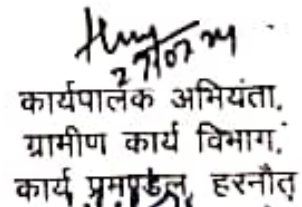 27/07/24
कार्यपालक अभियंता,
ग्रामीण कार्य विभाग,
कार्य प्रमण्डल, हरनौत